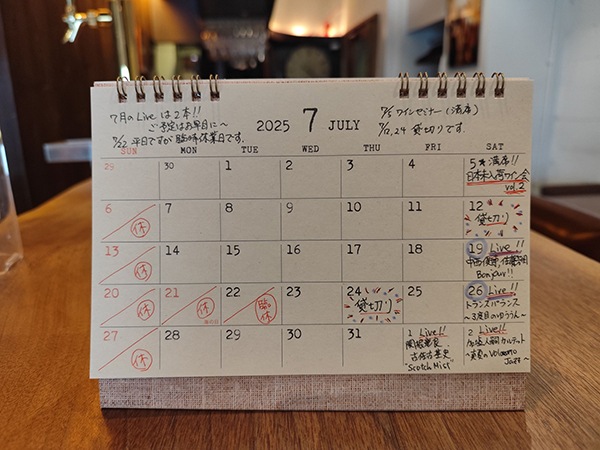 7月のLive は 2本!!
ご予定はお早目に〜
7/22 平日ですが臨時休業日です。
2025 7 JULY
7/5 ワインセミナー(満席)
7/12,24 貸切りです。
SUN MON TUE WED THU FRI SAT
29 30 1 2 3 4 5 ★満席!!
日本未入荷ワイン会
vol.2
6 休 7 8 9 10 11 12 貸切り
13 休 14 15 16 17 18 19 Live!!
Bonjour!!
20 休 21 休 22 臨休 23 24 貸切り 25 26 Live!!
トランスバランス
〜3度目のゆううん〜
27 休 28 29 30 31 1 Live!! 2 Live!!
"Scotch Mist"
カルテット
Jazz〜